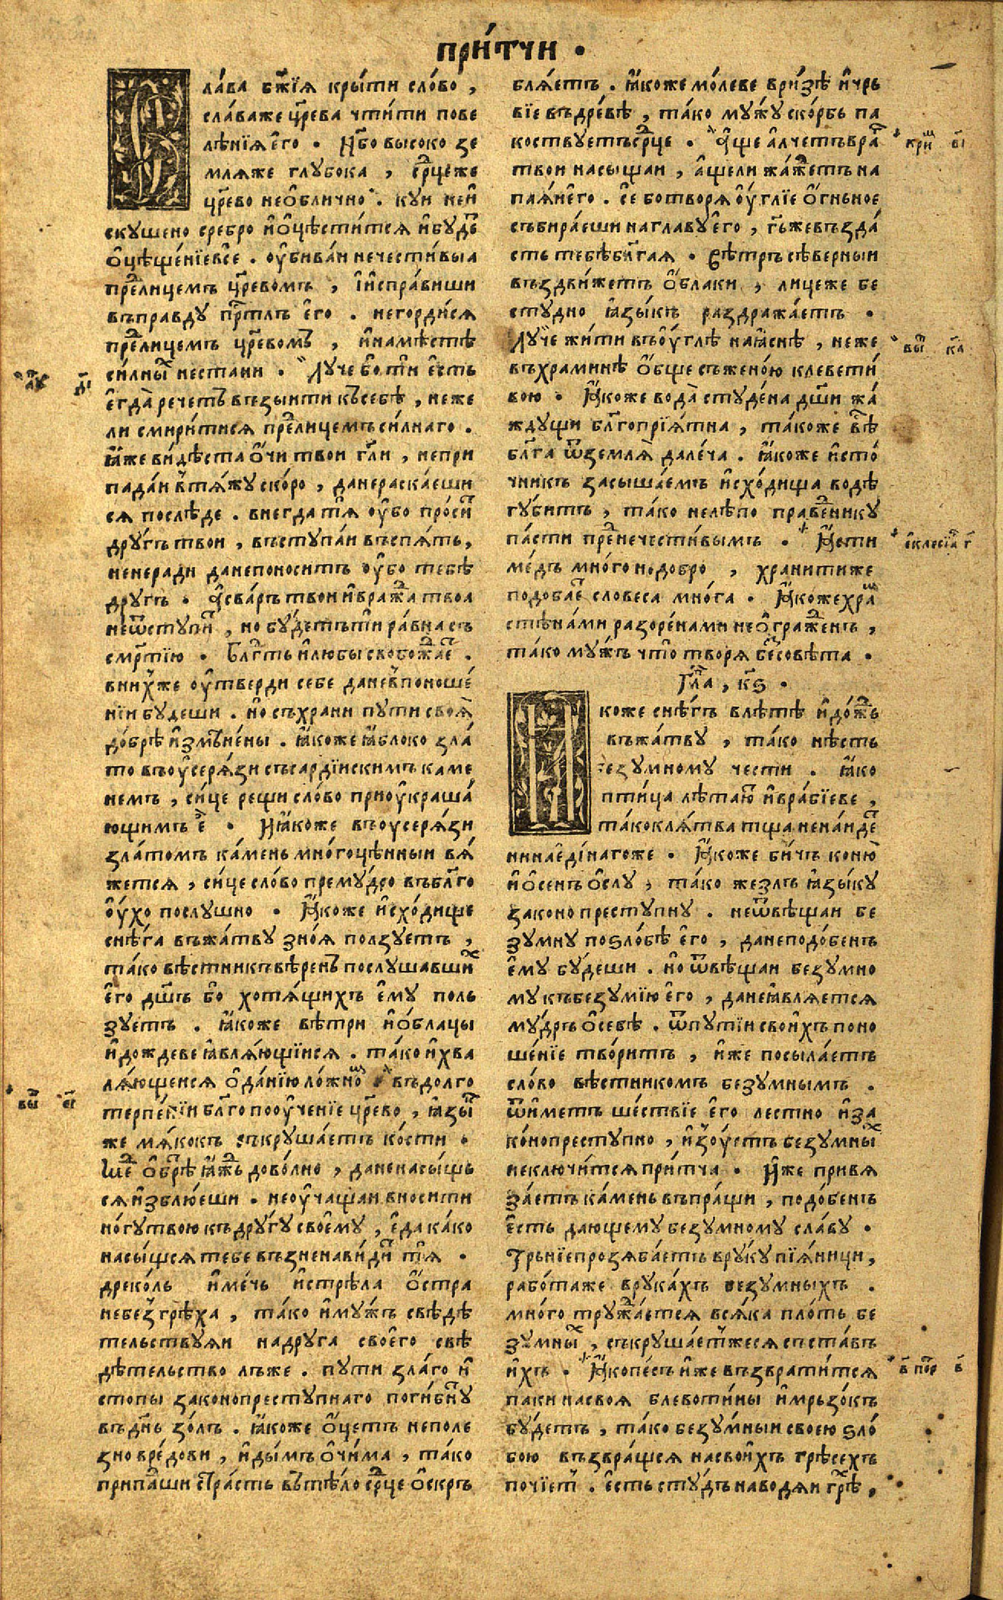 при́тчи ·
Сла́ва бж҃їѧ кры́ти сло́во ,
сла́ва же цр҃ева чти́ти пове
лѣ́нїѧ є҆го̀ . Нб҃о высоко зе
млѧ же глубока , ср҃це же
цр҃ево нео҆блично . куи неи҆
скушено сребро и҆ ѡ҆чѣсти́тсѧ и҆ бу́де
ѡ҆чѣще́нїе все . ᲂу҆бива́и нечести́выа
пре лицемъ цр҃евомъ , и҆ и҆спра́виши
въ пра́вду прⷭ҇тлъ є҆го . не горди́сѧ
пре лицемъ цр҃евомъ , и҆ на мѣ́стѣ
си́лны не стани . Лу́че бо ти є҆сть
є҆гда̀ речетъ възы́ити къ себѣ̀ , неже
ли смири́тисѧ пре лицемъ си́лнаго .
Ꙗ҆же ви́дѣста ѻ҆́чи твои гл҃и , не при
пада́и в тѧ́жу ско́ро , да не раска́еши
сѧ послѣ́де . внегда тѧ ᲂу҆бо про́си
дру́гъ твои , въступа́и въспѧ́ть ,
ни неради да не поноси́тъ ᲂу҆бо тебѣ
другъ . А҆ сва́ръ твои и҆ вражда твоа
не ѿступи , но бу́детъ ти ра́вна съ
смр҃тїю . Блгⷣть и҆ любы свобожа́е .
в ни́хже ᲂу҆тверди себе да не в поноше́
нїи бу́деши . но съхрани пути своѧ̀
до́брѣ и҆змѣне́ны . Ꙗ҆коже ꙗ҆блоко зла́
то въ ᲂу҆серѧ́зи съ сардїискимъ каме
немъ , си́це рещи сло́во при ᲂу҆краша́
ющимъ е . И ꙗ҆коже въ ᲂу҆серѧ́зи
зла́томъ ка́мень многоцѣ́нныи вѧ́
жетсѧ , си́це сло́во прему́дро въ бл҃го
ᲂу҆́хо послу́шно . Ꙗ҆коже и҆схо́дище
снѣ́га въ жа́тву зно́ѧ по́лзуетъ ,
та́ко вѣ́стникъ вѣ́ренъ послушавших
є҆го дш҃ѣ бо хотѧ́щихъ є҆му поль
зуетъ . Ꙗ҆коже вѣ́три и҆ ѻ҆́блацы
и҆ дождеве ꙗ҆влѧ́ющїисѧ . та́ко и҆ хва
лѧ́ющеисѧ ѡ҆ да́нїю ло́жно . въ долго
терпе́нїи бл҃гопоᲂу҆че́нїе цр҃ево , ꙗ҆зы
же мѧ́кокъ съкруша́етъ ко́сти .
Ме ѡ҆брѣ́ ꙗ҆ждь дово́лно , да не насы́щь
сѧ и҆зблюе́ши . не ᲂу҆чаща́и вноси́ти
но́гу твою къ дру́гу своєму , є҆да ка́ко
насы́щсѧ тебе възненави́дит тѧ .
дреко́ль и҆ ме́чь и҆ стрѣла ѻ҆стра
не без грѣ́ха , та́ко и҆ му́жъ свѣдѣ
тельствуѧи на друга своєго свѣ
дѣтельство лъже . пути зла́го и҆
стопы законопресту́пнаго поги́бну
въ дн҃ь зо́лъ . Ꙗ҆коже ѻ҆́цетъ неполе
зно вре́дови , и҆ ды́мъ ѻ҆чи́ма , та́ко
припа́дши стра́сть в тѣ́ло ср҃це ѡ҆скръ
блѧ́етъ . Ꙗ҆коже мо́леве в ри́зѣ и҆ чрь
вїе въ дре́вѣ , та́ко му́жу ско́рбь па
коствуетъ ср҃це . А҆ще а҆лчетъ вра
твои насы́щаи , а҆щели жа́жетъ на
паѧ́и є҆го . се бо творѧ ᲂу҆́глїе ѻ҆́гньное
събира́еши на главу є҆го , гь же възда
сть тебѣ бл҃гаѧ . вѣ́тръ сѣ́верныи
въздви́жетъ ѻ҆́блаки , лице же бе
сту́дно ꙗ҆зы́къ раздража́етъ .
Лу́че жи́ти въ ᲂу҆́глѣ на ꙗ҆снѣ , неже
въ храминѣ ѻ҆бще съ жено́ю клевети
вою . Ꙗ҆коже вода̀ студе́на дш҃и жа́
ждущи бл҃гопрїѧ́тна , та́коже вѣ
бл҃га ѿ землѧ̀ дале́ча . Ꙗ҆коже и҆сто́
чникъ засыпа́емъ и҆схо́дища водѣ
губитъ , та́ко нелѣ́по пра́венику
па́сти пре нечести́вымъ . Ꙗ҆сти
ме́дъ мно́го недобро , храни́ти же
подобае словеса мно́га . Ꙗ҆коже хра
стѣна́ми разоре́нами не ѡ҆гра́женъ ,
та́ко му́жъ что̀ творѧ бе съве́та .
Гла , к҃ѕ .
Ꙗ҆коже снѣ́гъ в лѣ́тѣ и҆ до́ждь
въ жа́тву , та́ко нѣ́сть
безу́мному чести . Ꙗ҆ко
пти́ца лѣта́ю и҆ вра́бїеве ,
та́ко клѧ́тва тща не на́иде
ни на е҆ди́наго же . Ꙗ҆коже би́чъ коню̀
и҆ ѻ҆сенъ ѻ҆слу́ , та́ко же́злъ ꙗ҆зы́ку
законопресту́пну . не ѿвѣщаи бе
зу́мну по ѕло́бѣ є҆го , да не подо́бенъ
є҆му бу́деши . но ѿвѣщаи безу́мно
му къ безу́мїю є҆го , да не ꙗ҆влѧ́етсѧ
му́дръ ѡ҆ себѣ . ѿ пути́и свои́хъ поно
ше́нїе твори́тъ , и҆же посыла́етъ
сло́во вѣ́стникомъ безу́мнымъ .
Ѿи́метъ ше́ствїе є҆го лестно и҆ за
ко́нопресту́пно , и҆зоу́стъ безу́мных
исключи́тсѧ при́тча . И҆же привѧ́
за́етъ ка́мень въ пра́щи , подо́бенъ
є҆сть даю́щему безу́мному сла́ву .
Тръ́нїе прозѧба́етъ в руку пїѧ́ници ,
рабо́та же в рука́хъ безумныхъ .
мно́го тружа́етсѧ всѧ́ка пло́ть бе
зумны , съкруша́етжесѧ съста́въ
и҆хъ . Ꙗ҆ко пе́съ и҆же възврати́тсѧ
паки на своѧ блевоти́ны и҆ мръзокъ
бу́детъ , та́ко безу́мныи своєю ѕло́
бою възвра́щсѧ на свои́хъ грѣсехъ
почїет . є҆сть сту́дъ наводѧи грѣ ,